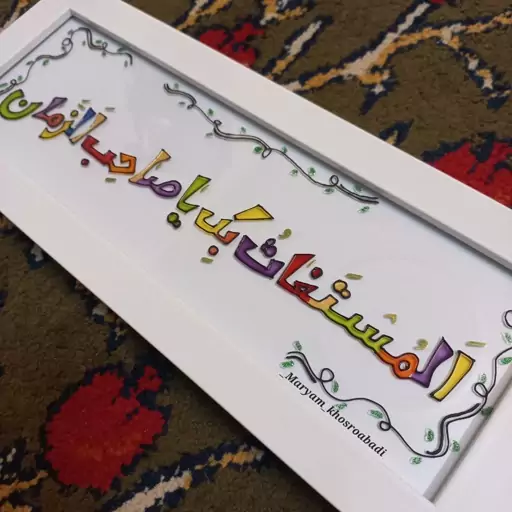 المُسْتَغاثُ بِکَ یا صاحِبَ الزَّمان
_Maryam_khosroabadi